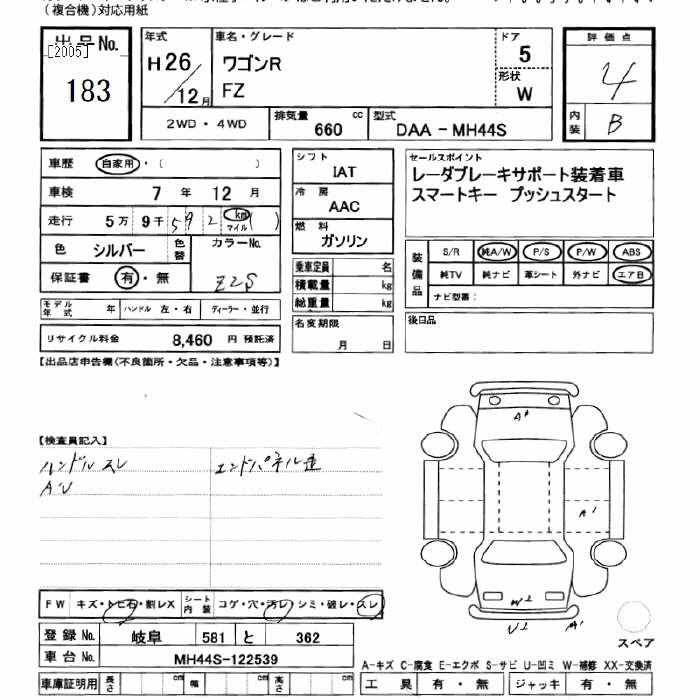 (複合機)対応用紙
出品No.
[2005]
183
年式
H26/12月
車名・グレード
ワゴンR
FZ
ドア
5
形状
W
評価点
4
内装
B
2WD・4WD
排気量
660
cc
型式
DAA-MH44S
車歴 自家用・( )
車検 7年 12月
走行 5万 9千 592 km マイル ( )
色 シルバー 色替
カラーNo.
Z2S
保証書 有・無
モデル年式 年 ハンドル 左・右 ディーラー・並行
リサイクル料金 8,460 円 預託済
シフト
IAT
冷房
AAC
燃料
ガソリン
乗車定員 名
積載量 kg
総重量 kg
名変期限
月 日
セールスポイント
レーダブレーキサポート装着車
スマートキー プッシュスタート
装備品
S/R 純A/W P/S P/W ABS
純TV 純ナビ 革シート 外ナビ エアB
ナビ型番:
後日品
【出品店申告欄(不良箇所・欠品・注意事項等)】
【検査員記入】
ハンドル スレ エンドパネル歪
A'U
A1
A1
W2
U2 A1
FW キズ・トビ石・割レX シート内装 コゲ・穴・汚レ・シミ・破レ・スレ
登録No. 岐阜 581 と 362
車台No. MH44S-122539
車庫証明用 長さ cm 幅 cm 高さ cm
スペア
A-キズ C-腐食 E-エクボ S-サビ U-凹ミ W-補修 XX-交換済
工具 有・無 ジャッキ 有・無